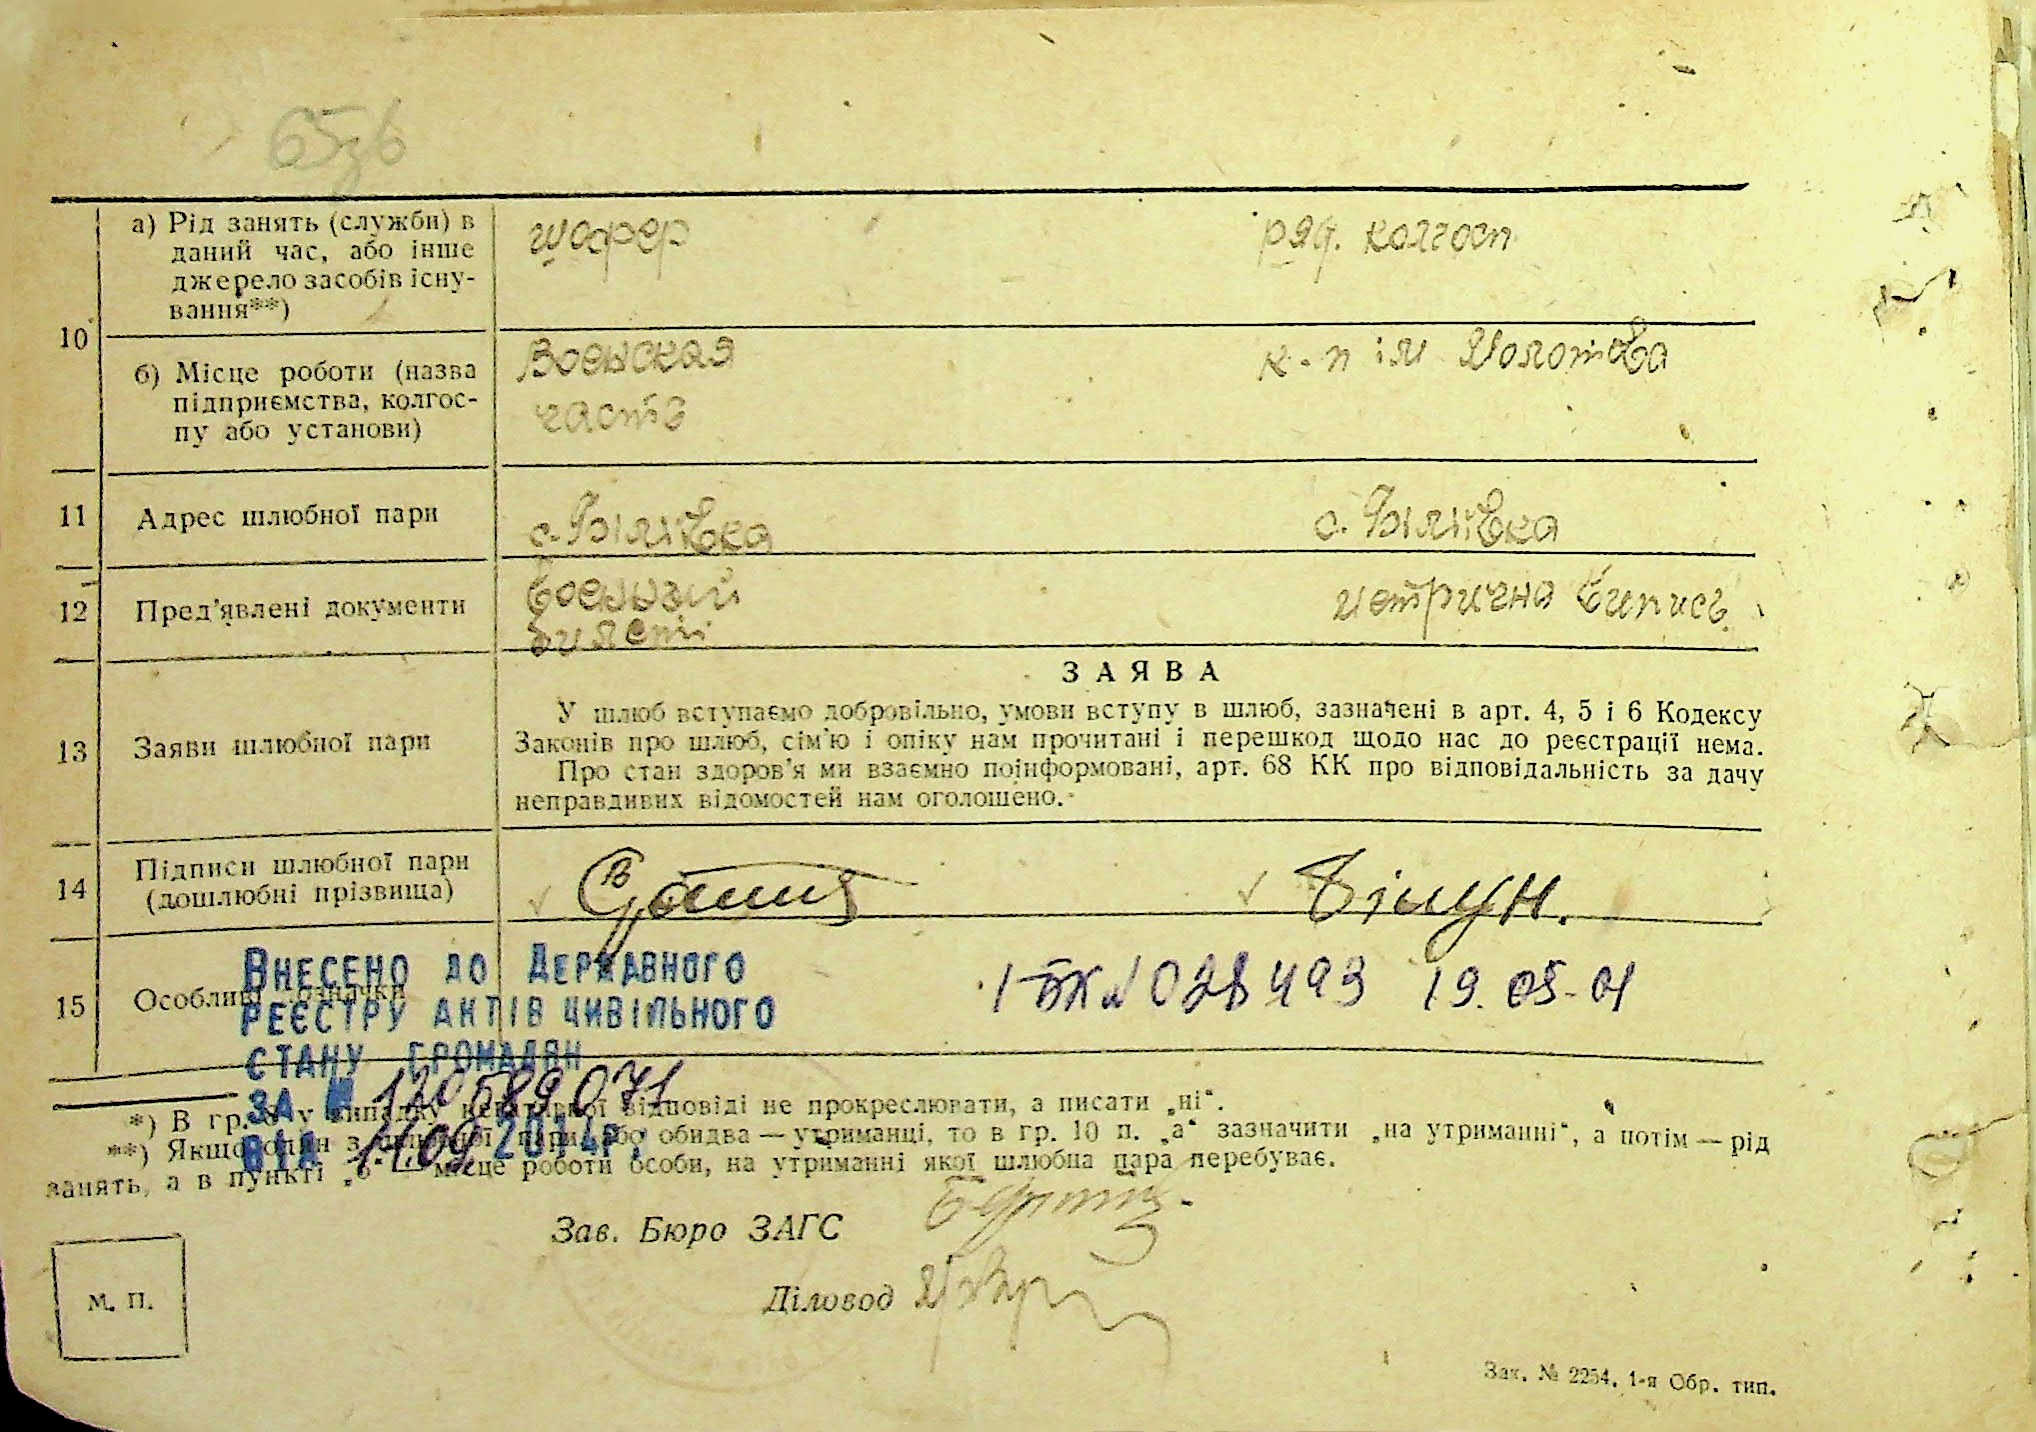 а) Рід занять (служби) в
даний час, або інше
джерело засобів існу-
вання**)
шофер
ряд. колгосп
10
б) Місце роботи (назва
підприємства, колгос-
пу або установи)
Военская
часть
к-п ім Молотова
11
Адрес шлюбної пари
с. Біліївка
с. Біліївка
12
Пред'явлені документи
военный
билет
метрична випись
13
Заяви шлюбної пари
ЗАЯВА
У шлюб вступаємо добровільно, умови вступу в шлюб, зазначені в арт. 4, 5 і 6 Кодексу
Законів про шлюб, сім'ю і опіку нам прочитані і перешкод щодо нас до реєстрації нема.
Про стан здоров'я ми взаємно поінформовані, арт. 68 КК про відповідальність за дачу
неправдивих відомостей нам оголошено.
14
Підписи шлюбної пари
(дошлюбні прізвища)
15
Особливі
Внесено до Державного
реєстру актів цивільного
стану громадян
за № 120589071
від 11.09 2014р.
І-БК № 028493 19.05-01
*) В гр. у випадку відповіді не прокреслювати, а писати „ні“.
**) Якщо один з пари або обидва — утриманці, то в гр. 10 п. „а“ зазначити „на утриманні“, а потім — рід
занять, а в пункті „б“ місце роботи особи, на утриманні якої шлюбна пара перебуває.
Зав. Бюро ЗАГС
Діловод
М. П.
Зак. № 2254. 1-я Обр. тип.